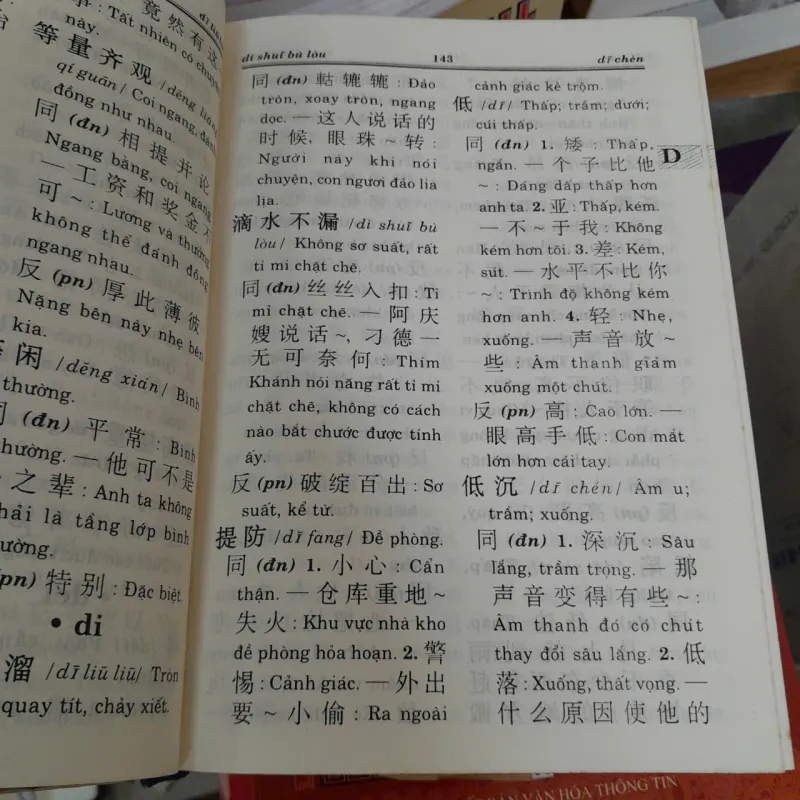 竟然有这
Tất nhiên có chuyện
này.
等量齐观 /děng liáng
qí guān/ Coi ngang, đánh
đồng như nhau.
同 (đn) 相提并论
Ngang bằng, coi ngang
— 工资和奖金不
可 ~ : Lương và thưởng
không thể đánh đồng
ngang nhau.
反 (pn) 厚此薄彼
Nặng bên này nhẹ bên
kia.
闲 /děng xián/ Bình
thường.
(đn) 平常: Bình
thường. — 他可不是
之辈: Anh ta không
phải là tầng lớp bình
thường.
(pn) 特别: Đặc biệt.
• di
溜 /dī liū liū/ Tròn
quay tít, chảy xiết.
di shuǐ bú lòu 143 dī chèn
同 (đn) 轱辘辘: Đảo
tròn, xoay tròn, ngang
dọc. — 这人说话的
时候, 眼珠 ~ 转:
Người này khi nói
chuyện, con ngươi đảo lia
lịa.
滴水不漏 /di shuǐ bú
lòu/ Không sơ suất, rất
tỉ mỉ chặt chẽ.
同 (đn) 丝丝入扣: Tỉ
mỉ chặt chẽ. — 阿庆
嫂说话 ~, 刁德一
无可奈何: Thím
Khánh nói năng rất tỉ mỉ
chặt chẽ, không có cách
nào bắt chước được tính
ấy.
反 (pn) 破绽百出: Sơ
suất, kể từ.
提防 /dī fang/ Đề phòng.
同 (đn) 1. 小心: Cẩn
thận. — 仓库重地 ~
失火: Khu vực nhà kho
đề phòng hỏa hoạn. 2. 警
惕: Cảnh giác. — 外出
要 ~ 小偷: Ra ngoài
cảnh giác kẻ trộm.
低 /dī/ Thấp; trầm; dưới;
cúi thấp.
同 (đn) 1. 矮: Thấp,
ngắn. — 个子比他
~ : Dáng dấp thấp hơn
anh ta. 2. 亚: Thấp, kém.
— 不 ~ 于我: Không
kém hơn tôi. 3. 差: Kém,
sút. — 水平不比你
~ : Trình độ không kém
hơn anh. 4. 轻: Nhẹ,
xuống. — 声音放 ~
些: Âm thanh giảm
xuống một chút.
反 (pn) 高: Cao lớn. —
眼高手低: Con mắt
lớn hơn cái tay.
低沉 /dī chén/ Âm u;
trầm; xuống.
同 (đn) 1. 深沉: Sâu
lắng, trầm trọng. — 那
声音变得有些 ~ :
Âm thanh đó có chút
thay đổi sâu lắng. 2. 低
落: Xuống, thất vọng. —
什么原因使他的
D
BẢN VĂN HÓA THÔNG TIN